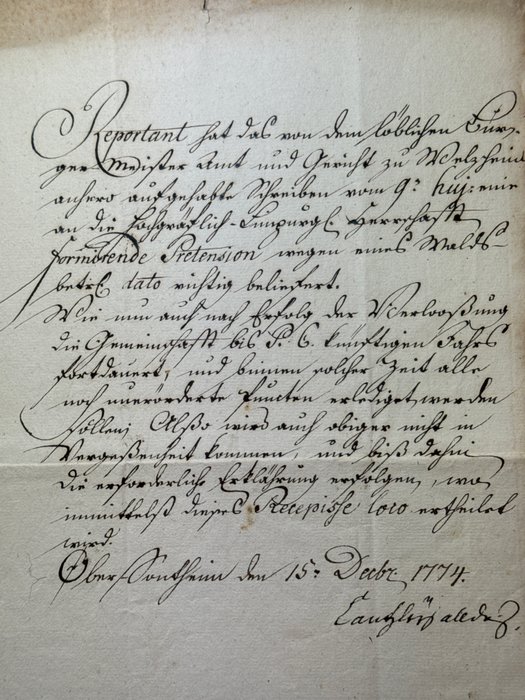 Reportant hat das von dem löblichen Bur-
germeister Amt und Gericht zu Welzheim
anhero aufgehabte Schreiben vom 9ᵗ huj: eine
an die Hochgräflich-Limpurgl. Herrschafft
formirende Pretension wegen eines Walds-
betrl. dato richtig beliefert.
Wie nun auch nach Erfolg der Verlooßung
die Gemeinschafft bis P. C. künfftigen Jahrs
fortdauert, und binnen solcher Zeit alle
noch unerörderte Puncten erlediget werden
sollen; Also wird auch obiger nicht in
Vergeßenheit kommen, und biß dahin
die erforderliche Erklährung erfolgen, wo
immittelst dieses Recepisse loco ertheilet
wird.
Ober Sontheim den 15ᵗ Decbr. 1774.
Cantzley allda